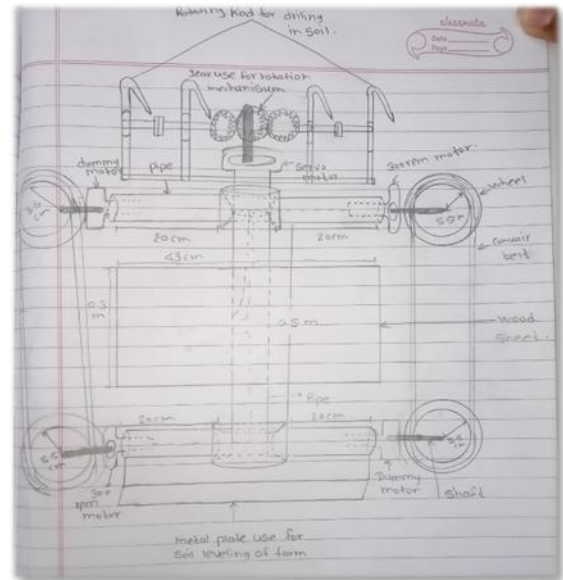 Rotating Rod for driling
in Soil.
classmate
Date
Page
Gear use for rotation
mechanisum
dummy
motor
pipe
Servo
motor
300 rpm motor.
wheel
5.5
cm
5.5cm
20cm
20cm
convair
belt
43cm
0.3
m
0.5 m
wood
Sheet.
Pipe
20cm
20cm
5.5
cm
5.5
cm
300
rpm
motor
Dummy
motor
Shaft
metal plate use for
Soil leveling of farm